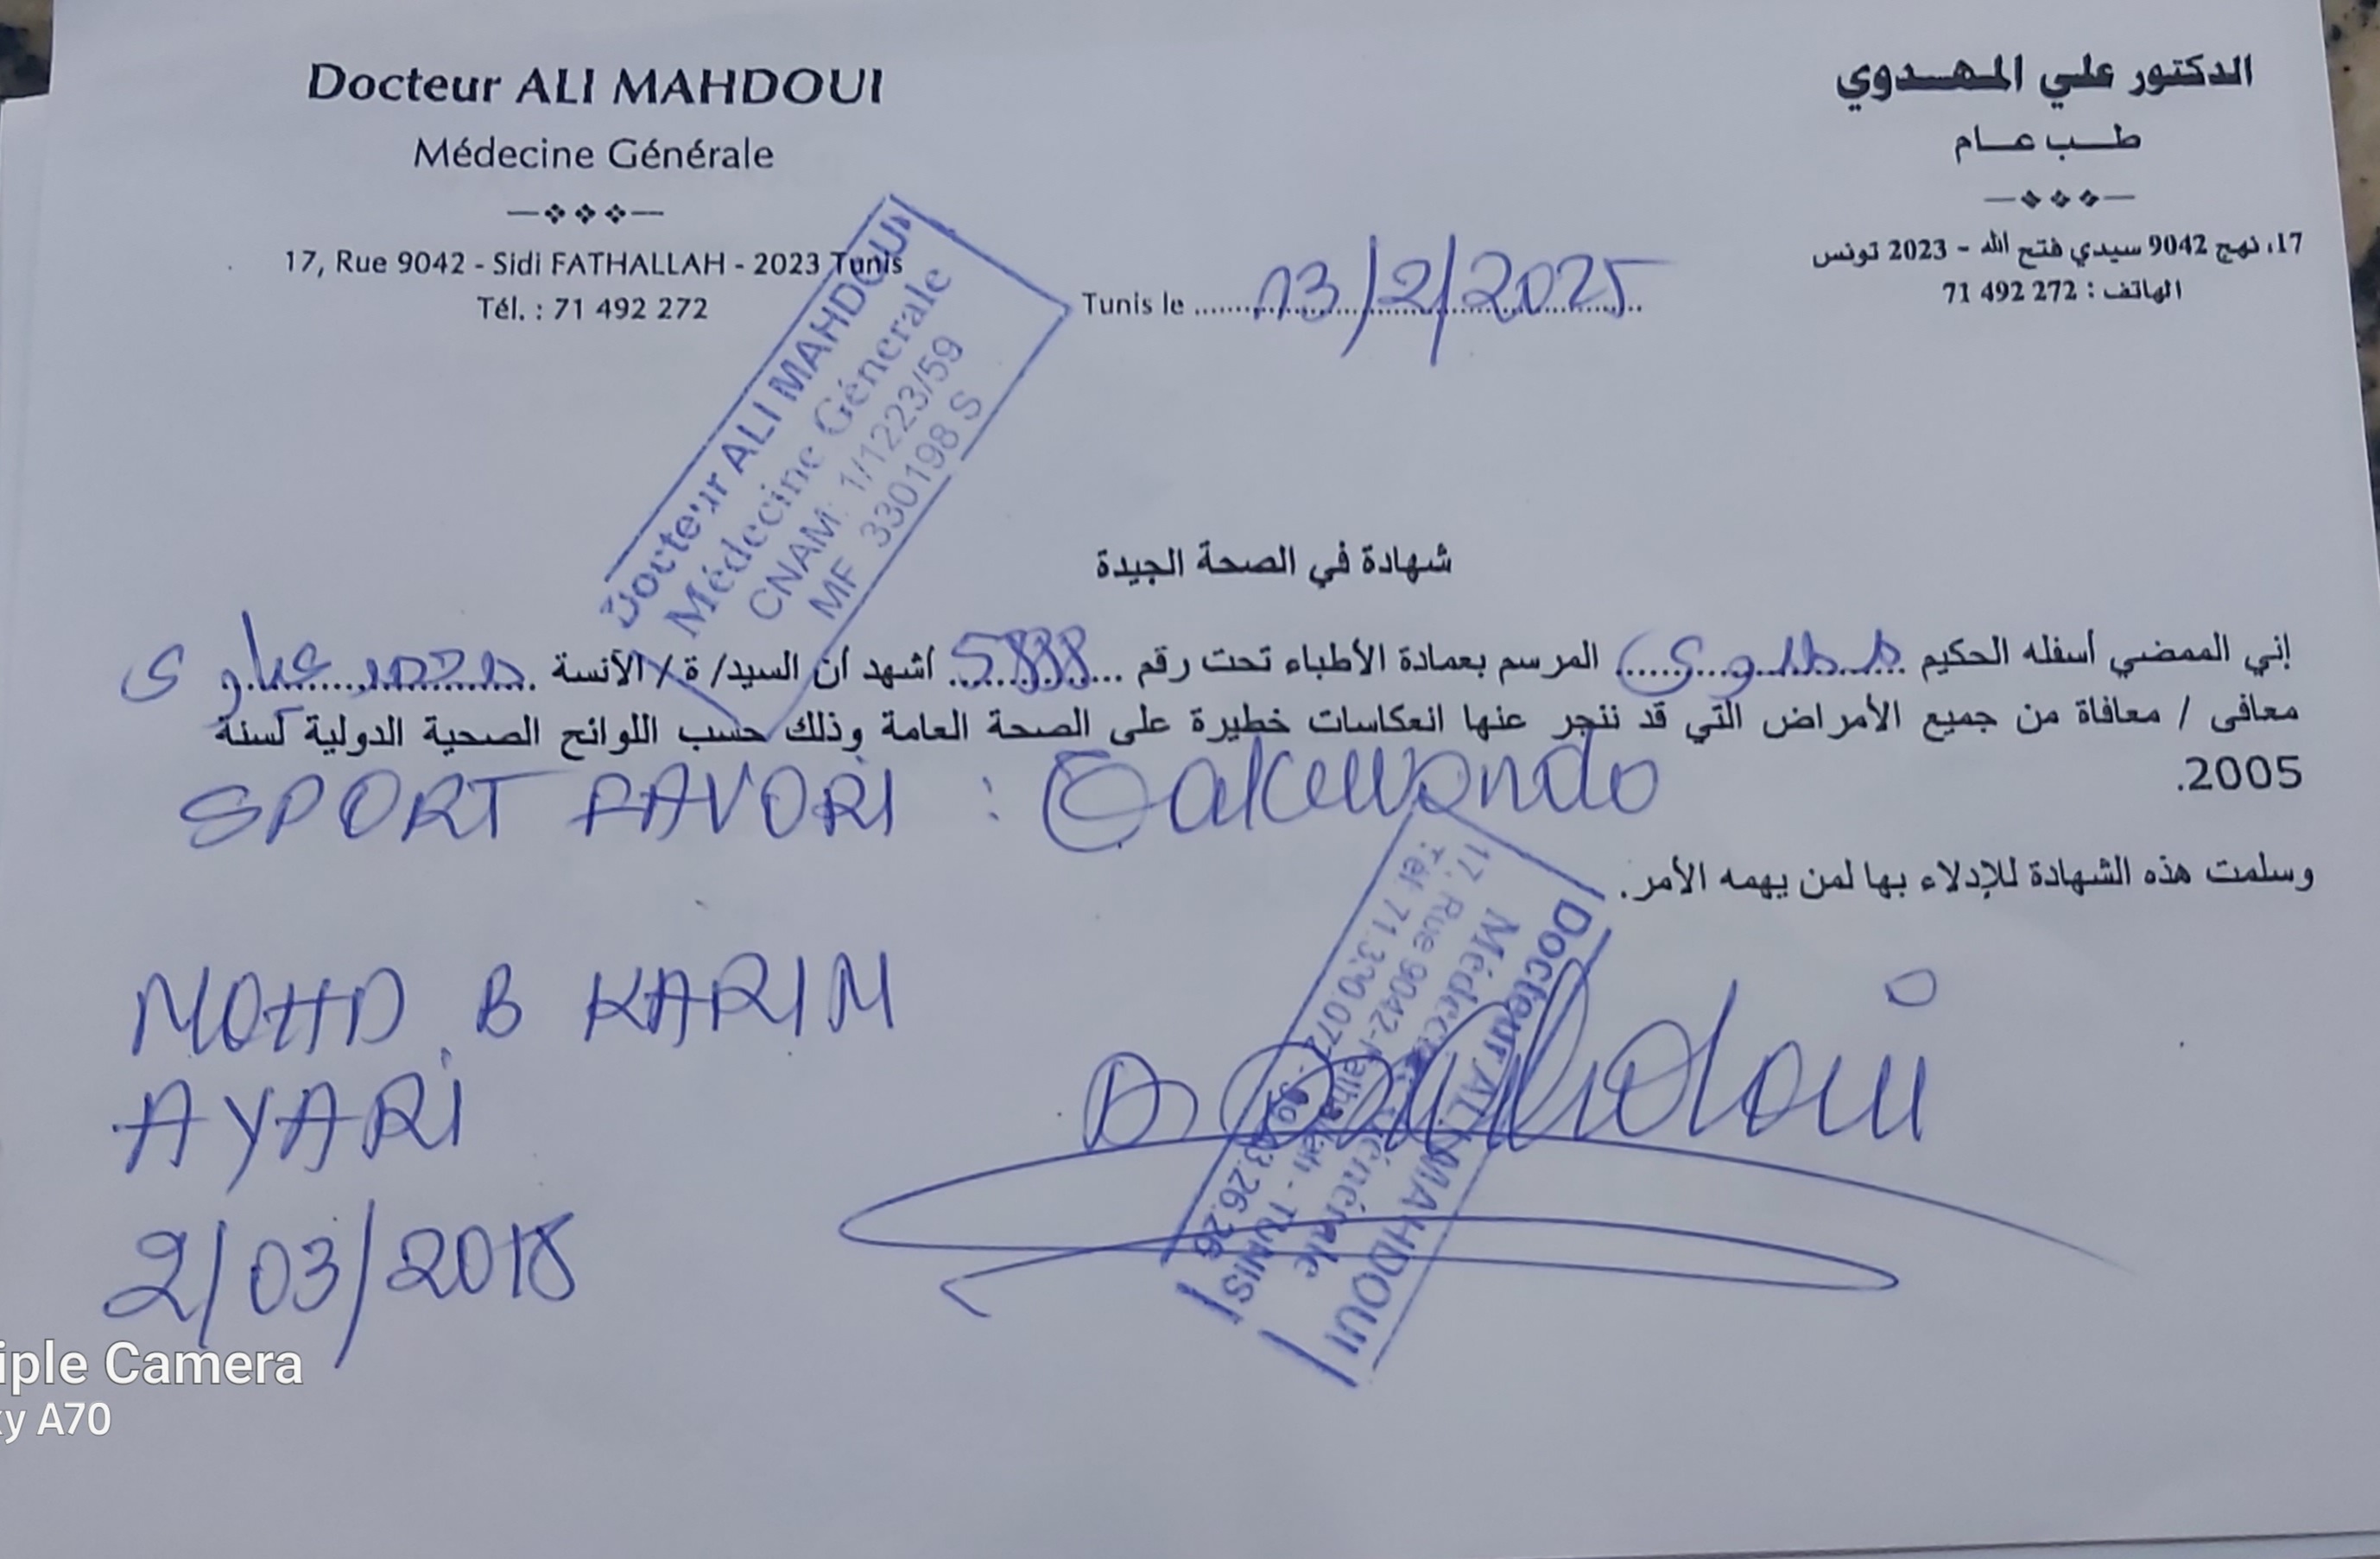 Docteur ALI MAHDOUI
Médecine Générale
17, Rue 9042 - Sidi FATHALLAH - 2023 Tunis
Tél. : 71 492 272
الدكتور علي المهدوي
طب عام
17، نهج 9042 سيدي فتح الله - 2023 تونس
الهاتف : 272 492 71
Tunis le 13/2/2025
Docteur ALI MAHDOUI
Médecine Génerale
CNAM 1/1223/59
MF 330198 S
شهادة في الصحة الجيدة
إني الممضي أسفله الحكيم المرسم بعمادة الأطباء تحت رقم 5888 أشهد أن السيد/ ة / الآنسة محمد عياري
معافى / معافاة من جميع الأمراض التي قد ننجر عنها انعكاسات خطيرة على الصحة العامة وذلك حسب اللوائح الصحية الدولية لسنة
2005.
SPORT FAVORI : Taekwondo
وسلمت هذه الشهادة للإدلاء بها لمن يهمه الأمر.
MOHD B KARIM
AYARI
2/03/2018
Docteur ALI MAHDOUI
Médecine Générale
17, Rue 9042- - TUNIS
Tél 71.390.072 - 26.26
Mahdoui
iple Camera
xy A70